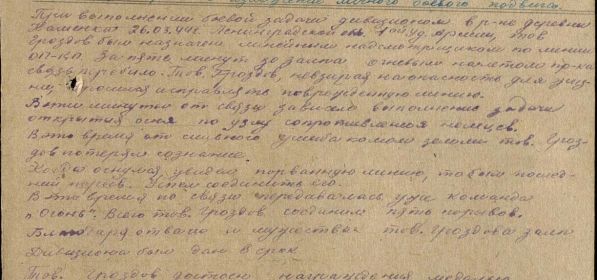 изложение личного боевого подвига.
При выполнении боевой задачи дивизионом в р-не деревни
26.03.44г. Ленинградской обл. 1ой Уд. Армии, тов
Гроздов был назначен линейным надсмотрщиком по линии
За пять минут до залпа огневым налетом пр-ка
связь перебило. Тов. Гроздов, невзирая на опасность для жиз-
ни, бросился исправлять поврежденную линию.
В эти минуты от связи зависело выполнение задачи
открытия огня по узлу сопротивления немцев.
В это время от сильного ушиба комом земли тов. Гроз-
дов потерял сознание.
Когда очнулся, увидал порванную линию, то был послед-
ний порыв. Успел соединить его.
В это время по связи передавалась уже команда
"Огонь". Всего тов. Гроздов соединил пять порывов.
Благодаря отваге и мужества тов. Гроздова залп
Дивизиона был дан в срок
Тов. Гроздов достоин награждения медалью